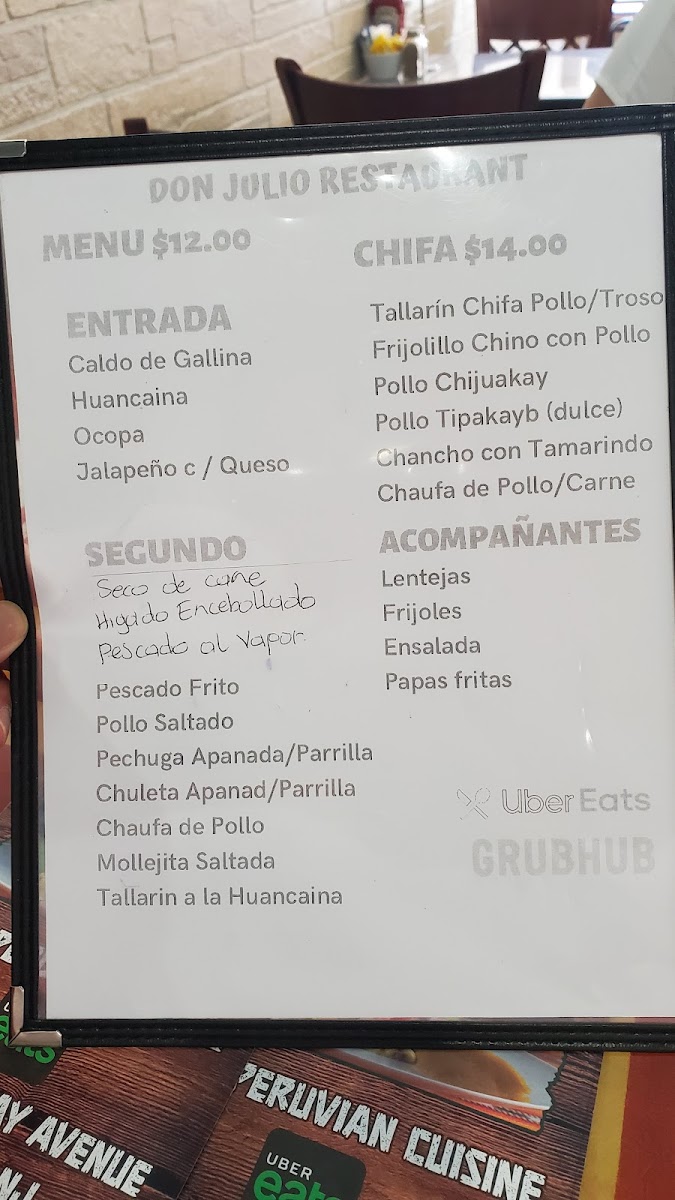 DON JULIO RESTAURANT
MENU $12.00
ENTRADA
Caldo de Gallina
Huancaina
Ocopa
Jalapeño c / Queso
SEGUNDO
Seco de carne
Higado Encebollado
Pescado al Vapor.
Pescado Frito
Pollo Saltado
Pechuga Apanada/Parrilla
Chuleta Apanad/Parrilla
Chaufa de Pollo
Mollejita Saltada
Tallarin a la Huancaina
CHIFA $14.00
Tallarín Chifa Pollo/Troso
Frijolillo Chino con Pollo
Pollo Chijuakay
Pollo Tipakayb (dulce)
Chancho con Tamarindo
Chaufa de Pollo/Carne
ACOMPAÑANTES
Lentejas
Frijoles
Ensalada
Papas fritas
Uber Eats
GRUBHUB
eats
AY AVENUE
N.J.
PERUVIAN CUISINE
UBER
eats